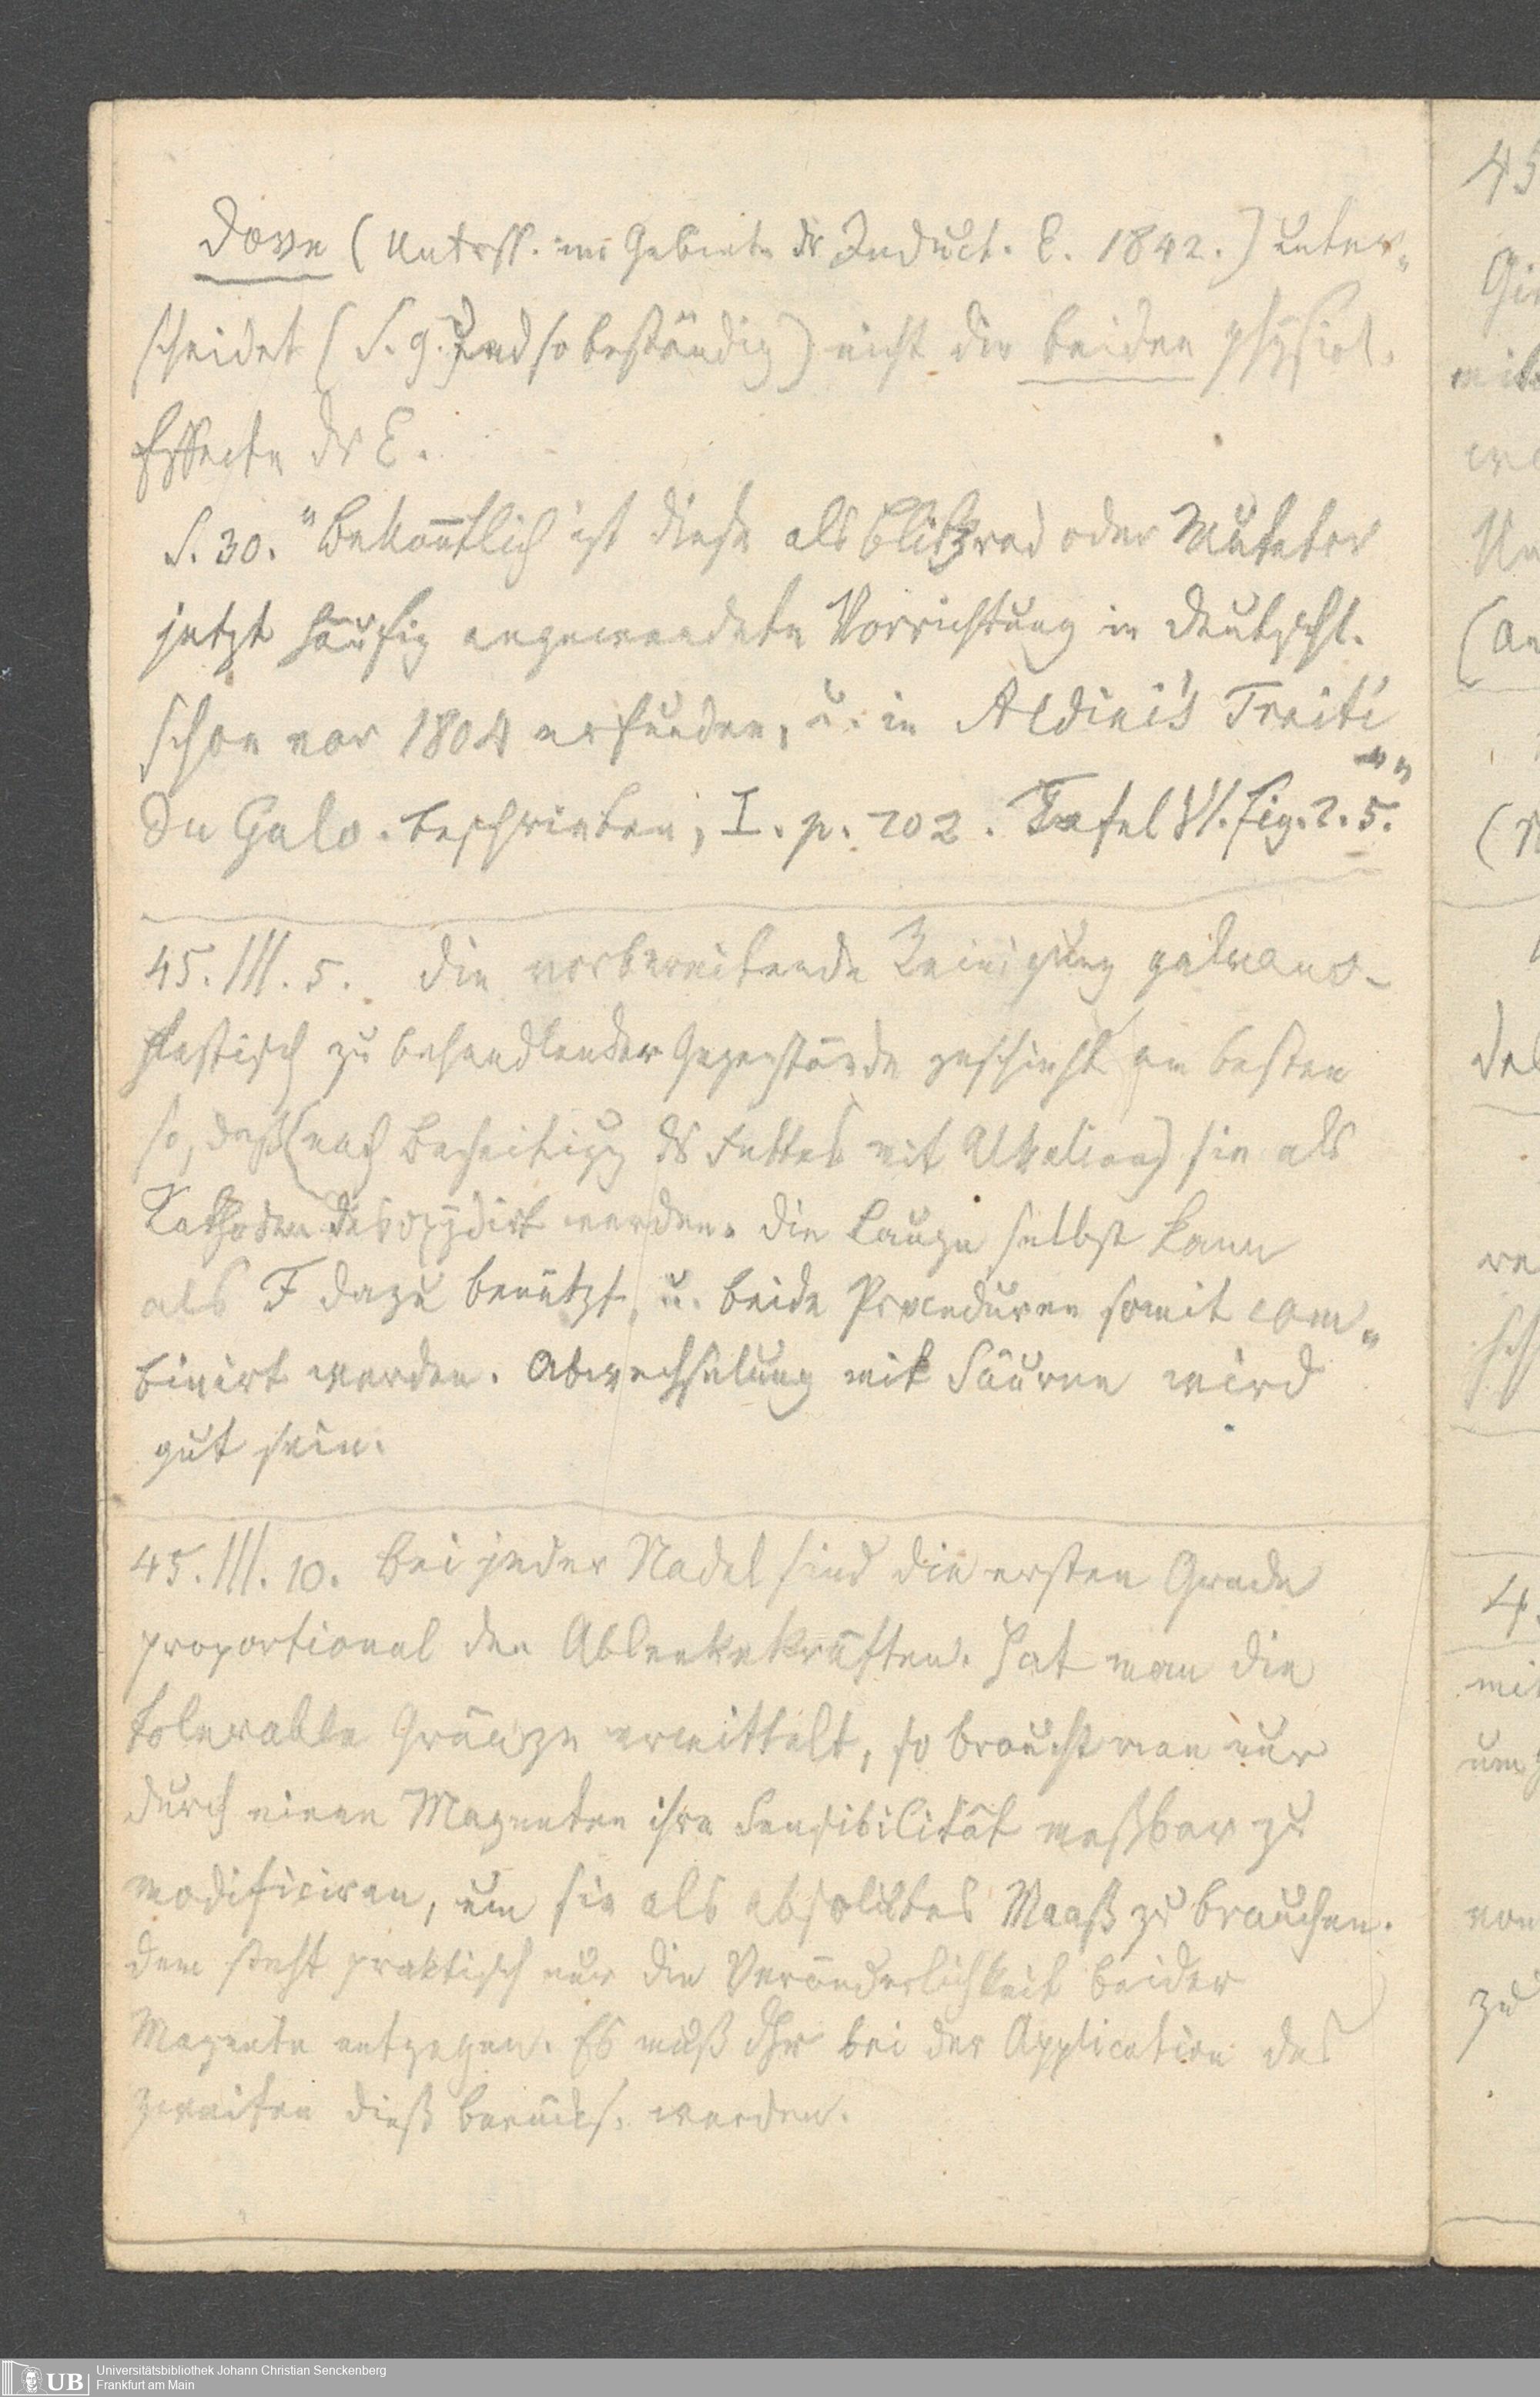 Dove (Unterss. im Gebiete dr Induct. E. 1842.) unter„
scheidet (S. 9. und so beständig) nicht die beiden physiol.
Effecte dr E.
S. 30. "Bekon̄tlich ist diese als Blitzrad oder Mutator
jetzt häufig angewendete Vorrichtung in Deutschl.
schon vor 1804 erfunden, u. in Aldini's Traité
du Galv. beschrieben, I. p. 202. Tafel VI. Fig. 2. 5."
45. III. 5. Die vorbereitende Reinigung galvano-
plastisch zu behandlender Gegenstände geschieht am besten
so, daß (nach Beseitigg ds Fettes mit Alkalien) sie als
Kathoden desoxydirt werden. Die Lauge selbst kann
als F dazu benützt, u. beide Proceduren somit com„
binirt werden. Abwechselung mit Säuren wird
gut sein.
45. III. 10. Bei jeder Nadel sind die ersten Grade
proportional den Ablenkekräften. Hat man die
tolerable Gränze ermittelt, so braucht man nur
durch einen Magneten ihre Sensibilität meßbar zu
modificiren, um sie als absolutes Maaß zu brauchen.
Dem steht praktisch nur die Veränderlichkeit beider
Magnete entgegen. Es muß dhr bei der Application des
zweiten dieß berücks. werden.
45
mit
(an
4
zu
UB
Universitätsbibliothek Johann Christian Senckenberg
Frankfurt am Main